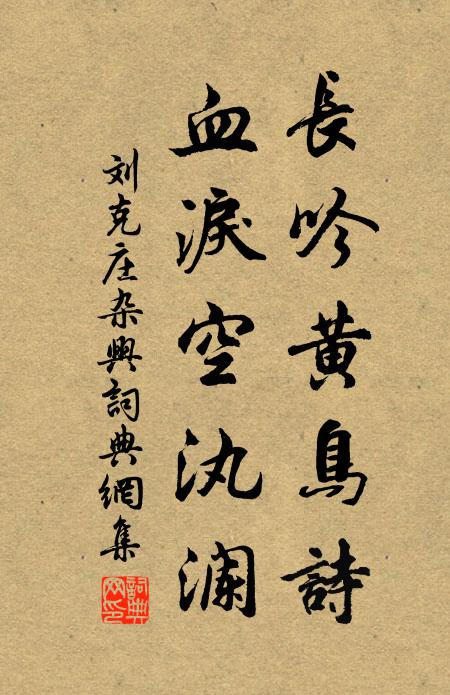 長吟黄鳥詩
血淚空汍澜
刘克庄杂興詞典網集
詞典
网印